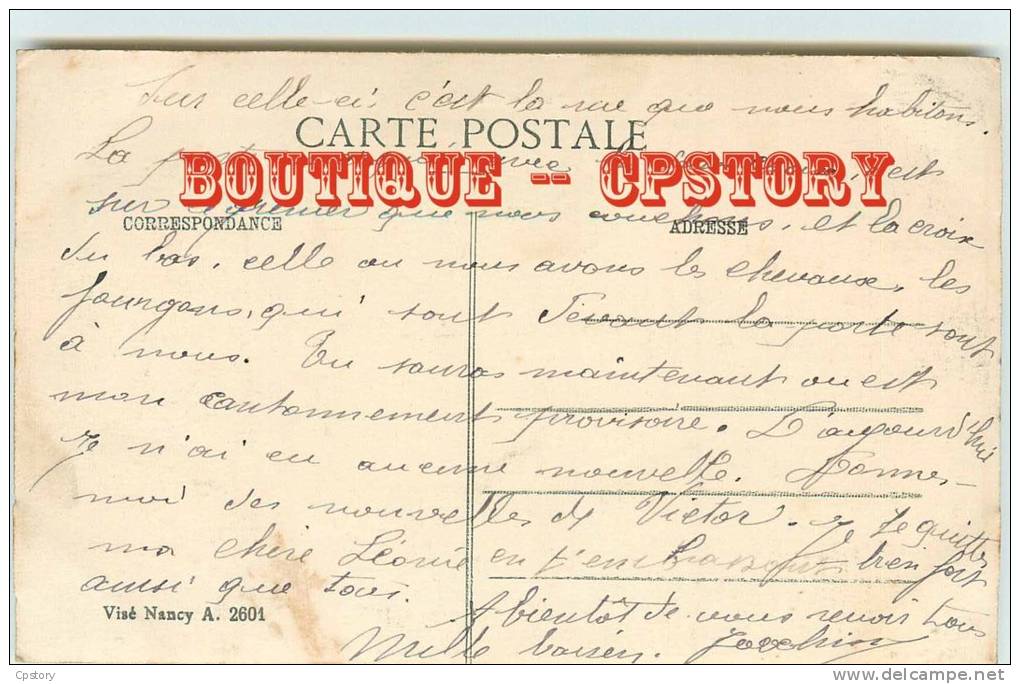 Sur celle-ci, c'est la rue que nous habitons.
CARTE POSTALE
La est
BOUTIQUE -- CPSTORY
sur grenier que nous couchons, et la croix
CORRESPONDANCE
ADRESSE
du bas, celle ou nous avons les chevaux, les
fourgons, qui sont devant la porte sont
à nous. Tu sauras maintenant ou est
mon cantonnement provisoire. D'aujourd'hui
je n'ai eu aucune nouvelle. Donnes-
moi des nouvelles de Victor. Je te quitte
ma chère Léonie en t'embrassant bien fort
ainsi que tous.
Visé Nancy A. 2601
A bientôt de vous revoir tous
Mille baisers.
Cpstory
http://www.delcampe.net